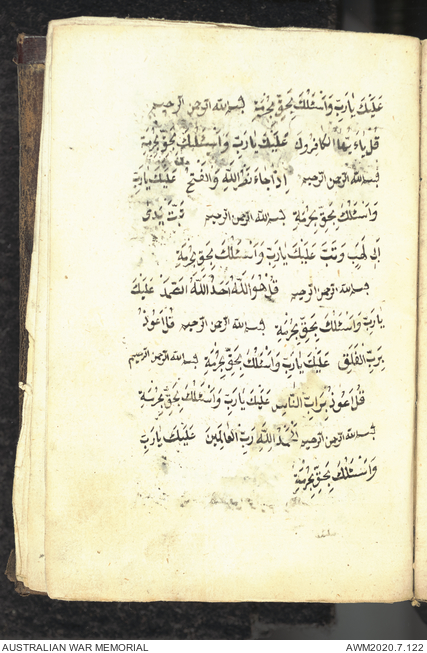 عَلَيْكَ يَارَبِّ وَاَسْئَلُكَ بِحَقِّ بِحُرْمَةِ بسم الله الرحمن الرحيم
قُلْ يَاءَيُّهَا الْكَافِرُونَ عَلَيْكَ يَارَبِّ وَاَسْئَلُكَ بِحَقِّ بِحُرْمَةِ
بسم الله الرحمن الرحيم اِذَا جَاءَ نَصْرُ اللهِ وَالْفَتْحُ عَلَيْكَ يَارَبِّ
وَاَسْئَلُكَ بِحَقِّ بِحُرْمَةِ بسم الله الرحمن الرحيم تَبَّتْ يَدَى
اَبِى لَهَبٍ وَتَبَّ عَلَيْكَ يَارَبِّ وَاَسْئَلُكَ بِحَقِّ بِحُرْمَةِ
بسم الله الرحمن الرحيم قُلْ هُوَ اللهُ اَحَدٌ اَللهُ الصَّمَدُ عَلَيْكَ
يَارَبِّ وَاَسْئَلُكَ بِحَقِّ بِحُرْمَةِ بسم الله الرحمن الرحيم قُلْ اَعُوذُ
بِرَبِّ الْفَلَقِ عَلَيْكَ يَارَبِّ وَاَسْئَلُكَ بِحَقِّ بِحُرْمَةِ بسم الله الرحمن الرحيم
قُلْ اَعُوذُ بِرَبِّ النَّاسِ عَلَيْكَ يَارَبِّ وَاَسْئَلُكَ بِحَقِّ بِحُرْمَةِ
بسم الله الرحمن الرحيم اَلْحَمْدُ لِلّٰهِ رَبِّ الْعَالَمِينَ عَلَيْكَ يَارَبِّ
وَاَسْئَلُكَ بِحَقِّ بِحُرْمَةِ
AUSTRALIAN WAR MEMORIAL AWM2020.7.122